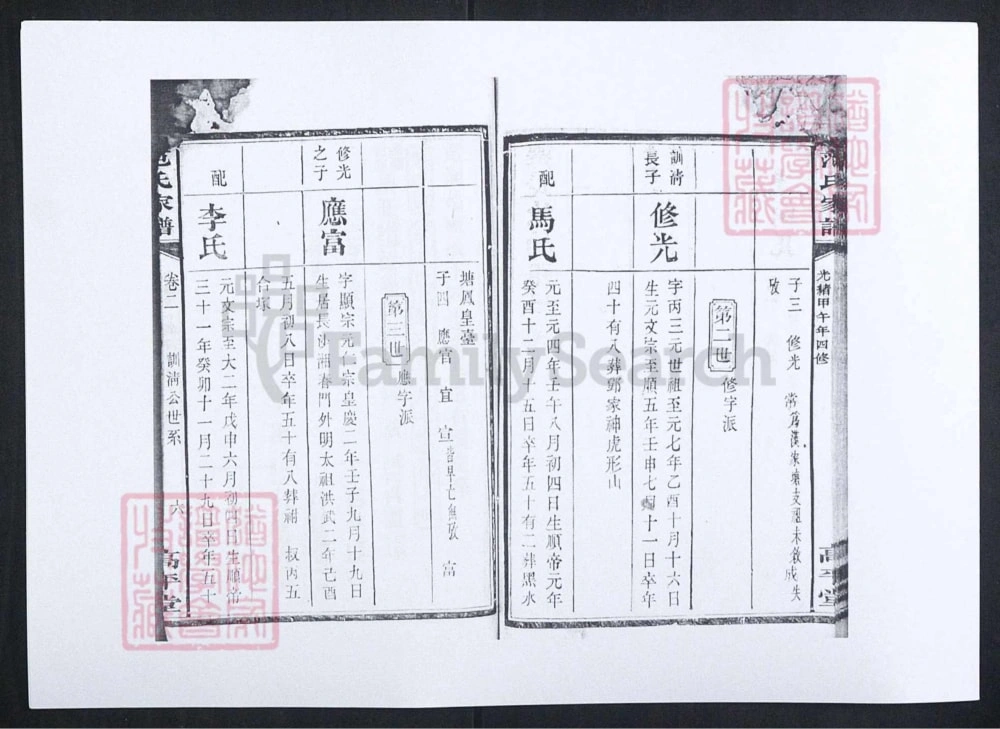 氏家譜
光緒甲午年四修
高平堂
子三　修光
攷
第二世　修字派
訓清長子
修光
字丙三元世祖至元七年乙酉十月十六日
生元文宗至順五年壬申七月十一日卒年
四十有八葬鄧家神虎形山
配
馬氏
元至元四年壬午八月初四日生順帝元年
癸酉十二月十五日卒年五十有二葬黑水
塘鳳皇臺
子四　應富　宜　宣皆早亡無攷　富
第三世　應字派
修光之子
應富
字顯宗元仁宗皇慶二年壬子九月十九日
生居長沙湘春門外明太祖洪武二年己酉
五月初八日卒年五十有八葬祔　叔丙五
合塚
配
李氏
元文宗至大二年戊申六月初四日生順帝
三十一年癸卯十一月二十九日卒年五十
氏家譜
卷二
訓清公世系
六
高平堂
FamilySearch